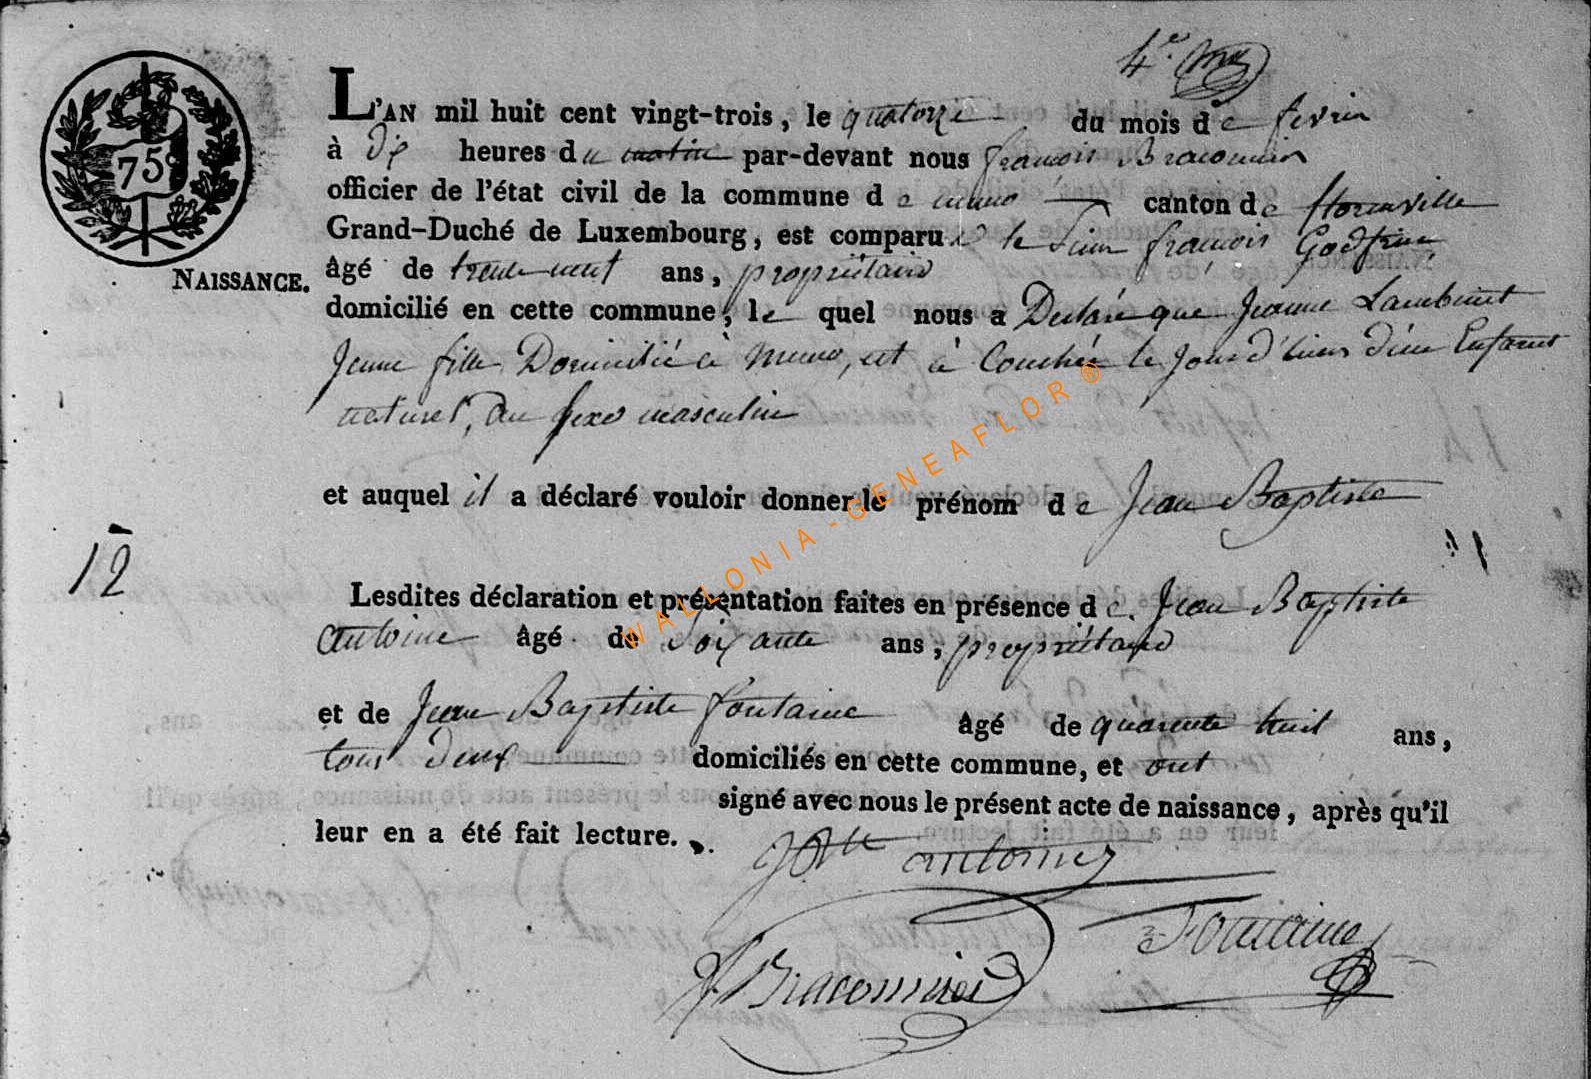 4.e
75c
NAISSANCE.
L'AN mil huit cent vingt-trois, le quatorze du mois de fevrier
à dix heures du matin par-devant nous françois Braconnier
officier de l'état civil de la commune de muno canton de florenville
Grand-Duché de Luxembourg, est comparu le Sieur françois Godfrin
âgé de trente neuf ans, propriétaire
domicilié en cette commune, lequel nous a Declaré que Jeanne Lambinet
Jeune fille Domicilié à Muno, est à Couchée le Jour d'hier d'un Enfant
naturel, du sexe masculin
et auquel il a déclaré vouloir donner le prénom de Jean Baptiste
12
Lesdites déclaration et présentation faites en présence de Jean Baptiste
antoine âgé de soixante ans, propriétaire
et de Jean Baptiste fontaine âgé de quarente huit ans,
tous deux domiciliés en cette commune, et ont
signé avec nous le présent acte de naissance, après qu'il
leur en a été fait lecture.
JBtte antoine
Fontaine
f Braconnier
WALLONIA - GENEAFLOR ®